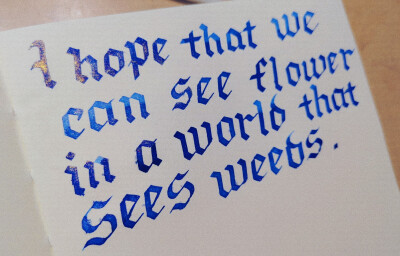 I hope that we
can see flower
in a world that
sees weeds.